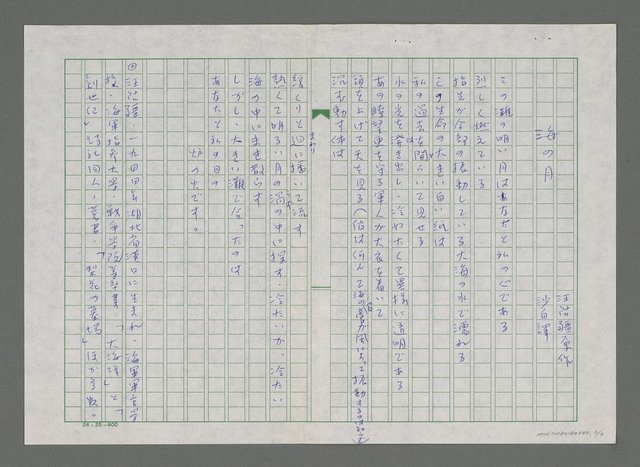 海の月
汪啓疆原作
沙白譯
この灘の明い月はあなたと私の心である
烈しく燃えている
指先が全部の振動している大海の水で濡れる
この生命の大きい白い紙は
私の過去を開らいて見せる
水の光を滲き出し・冷わたくて異様に透明である
あの瞭望臺を守る軍人が大衣を着いて
頭を上げて天を見る
沉む動す体は
緩くりと廻に描いて流す
まわり
熱くて明るい月の渦の中に探す・冷たいか、冷たい
うず
海の中にまき散らす
しかし大きい灘で会ったのは
あなたと私の目の
炉の火です。
◎汪啓疆・一九四四年湖北省漢口に生まれ・海軍軍官学
校・海軍指参大学・戦争学院等卒業・「大海洋」と「
創世纪」詩社同人・著書・「梨花の墓場」ほか多数。
24×25=600